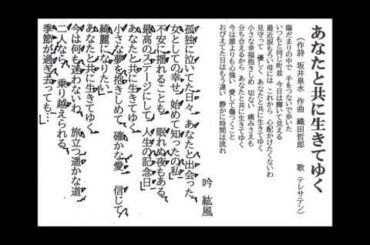 あなたと共に生きてゆく
(作詩 坂井泉水 作曲 織田哲郎 歌 テレサテン)
陽だまりの中 手をつないで歩いた
いつもと同じ町並 今日は違って見える
最近涙もろい母には これから 心配かけたくないわ
見守って 優しく あなたと共に生きてゆく
小さな幸福抱きしめ 切ない 痛みさえも
分ち合えるから あなたと共に生きてゆく
今は誰よりも心強い 愛して傷つくこと
おびえてた日はもう遠い 静かに時間は流れ
吟 紘風
孤独に泣いてた日々 あなたと出会った
女としての幸せ 始めて知ったの私
不安に揺れることも 眠れぬ夜もある
最高のステージにして 人生の記念日
あなたと共に生きてゆく
小さな夢を抱きしめて 確かな愛 信じて
綺麗になりたい
あなたと共に生きてゆく
今は何も迷わないわ 旅立つ遥かな道
二人なら 乗り越えられる
季節が過ぎ去っても…